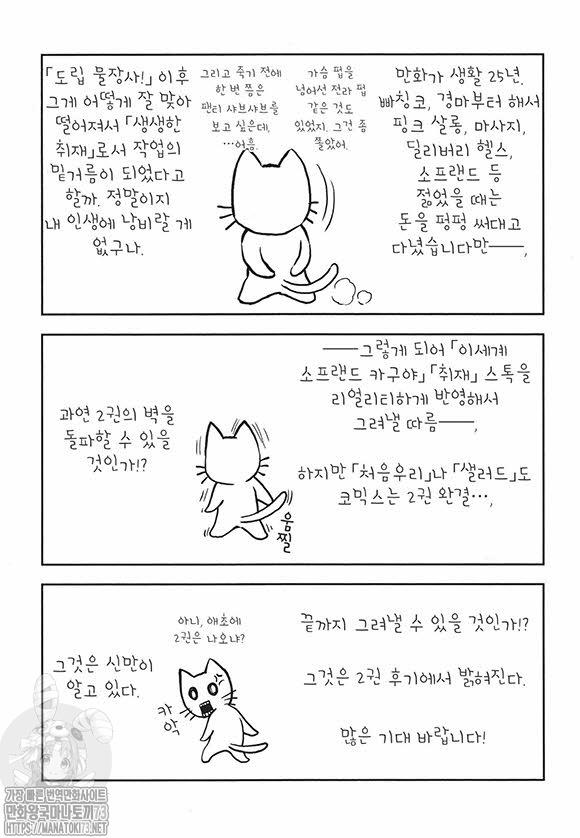 만화가 생활 25년.
빠칭코, 경마부터 해서
핑크 살롱, 마사지,
딜리버리 헬스,
소프랜드 등
젊었을 때는
돈을 펑펑 써대고
다녔습니다만──,
가슴 펍을
넘어선 전라 펍
같은 것도
있었지. 그건 좀
쫄았어.
그리고 죽기 전에
한 번 쯤은
팬티 샤브샤브를
보고 싶은데.
…어흠.
「도립 물장사!」 이후
그게 어떻게 잘 맞아
떨어져서 「생생한
취재」로서 작업의
밑거름이 되었다고
할까. 정말이지
내 인생에 낭비랄 게
없구나.
──그렇게 되어 「이세계
소프랜드 카구야」 「취재」 스톡을
리얼리티하게 반영해서
그려낼 따름──,
하지만 「처음우리」나 「샐러드」도
코믹스는 2권 완결…,
과연 2권의 벽을
돌파할 수 있을
것인가!?
움
찔
끝까지 그려낼 수 있을 것인가!?
그것은 2권 후기에서 밝혀진다.
많은 기대 바랍니다!
아니, 애초에
2권은 나오냐?
카
악
그것은 신만이
알고 있다.
가장 빠른 번역만화사이트
만화왕국마나토끼73
HTTPS://MANATOKI73.NET